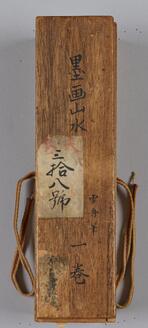 墨画山水 一巻
雪舟筆
三拾八號